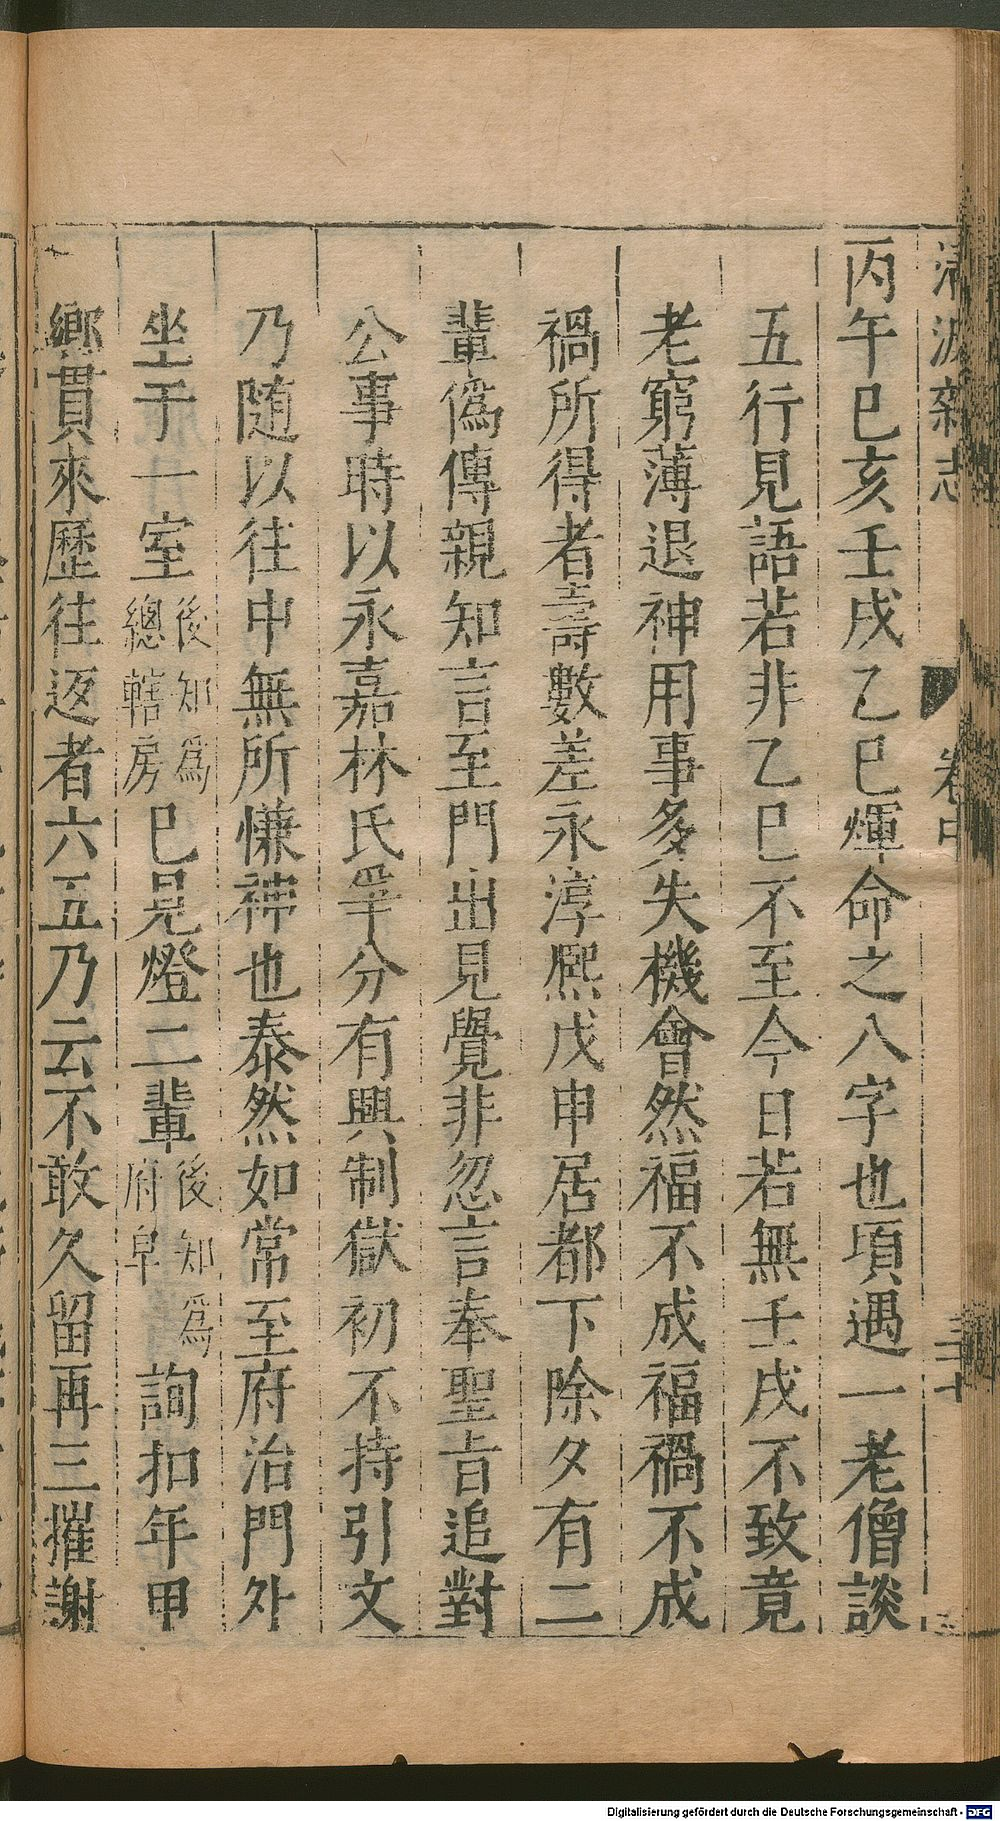 清波雜志 卷中 三十
丙午巳亥壬戌乙巳煇命之八字也頃遇一老僧談
五行見語若非乙巳不至今日若無壬戌不致竟
老窮薄退神用事多失機會然福不成福禍不成
禍所得者壽數差永淳熙戊申居都下除夕有二
輩僞傳親知言至門出見覺非忽言奉聖旨追對
公事時以永嘉林氏爭分有興制獄初不持引文
乃随以往中無所慊神也泰然如常至府治門外
坐于一室後知爲總轄房巳見燈二輩後知爲府皁詢扣年甲
鄉貫來歷往返者六五乃云不敢久留再三摧謝
Digitalisierung gefördert durch die Deutsche Forschungsgemeinschaft - DFG